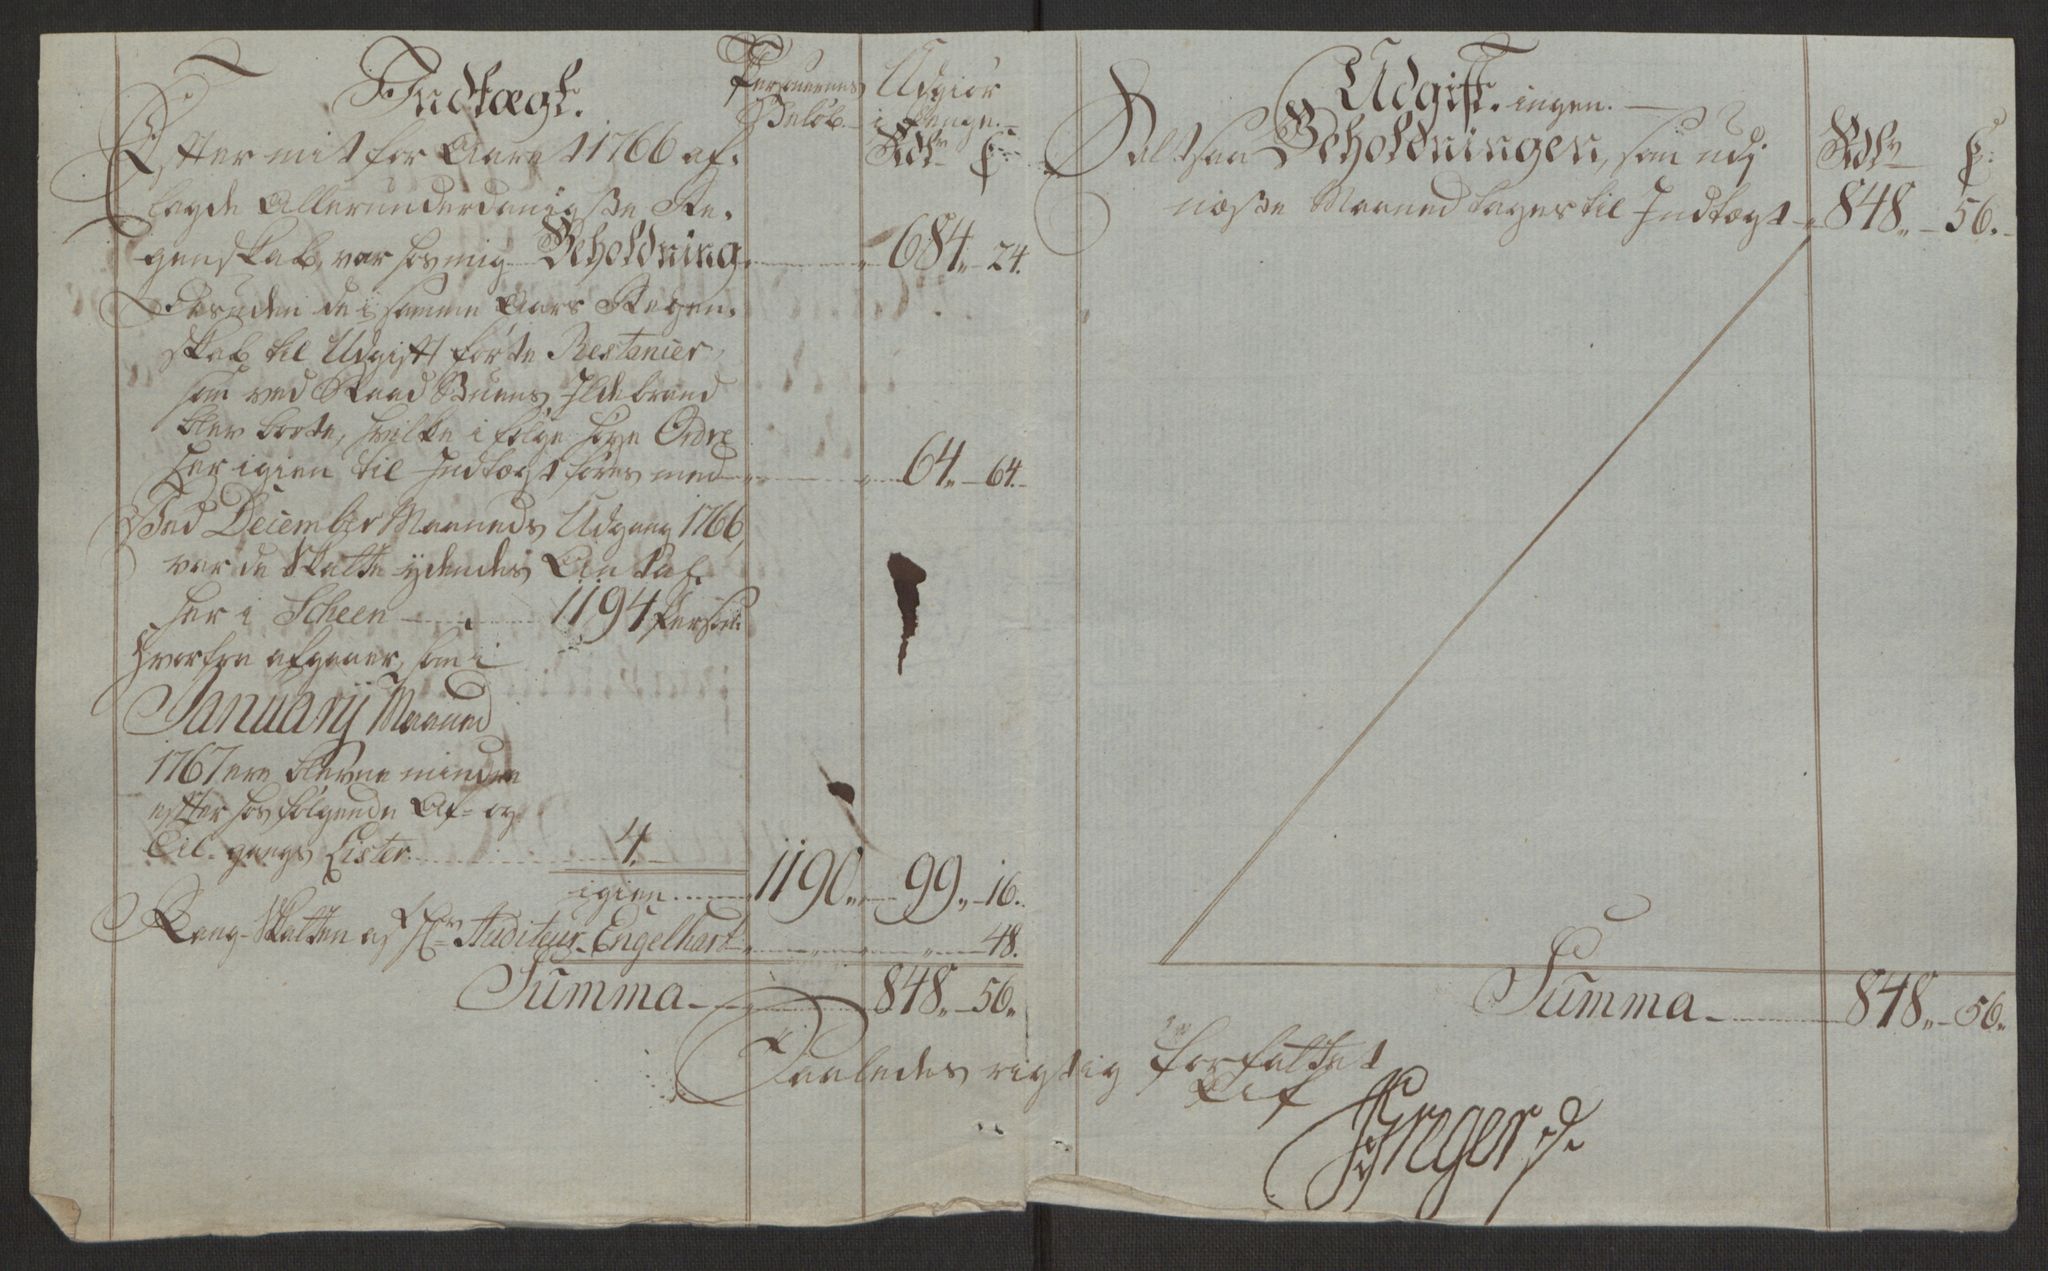 Indtægt.
Personernes Beløb
Udgiør i Penge.
Rdlr ß
Efter mit for Aaret 1766 af-
lagde Allerunderdanigste Re-
genskab, var hos mig Beholdning 684 „ 24.
Desuden de i samme Aars Regen-
skab til Udgift førte Restancier,
som ved Raad Stuens Ildebrand
blev borte, hvilke i følge høye Ordre
her igien til Indtægt føres med 64 „ 64.
Ved December Maaneds Udgang 1766,
var de Skatte ydendes Antal
her i Scheen 1194 Persohn:
Hvorfra afgaaer, som i
Januarij Maaned
1767 ere blevne mindre
efter hosfølgende Af- og
Til-gangs Lister 4.
igien 1190 „ 99 „ 16.
Rang-Skatten af Hr Auditeur Engelhart „ 48.
Summa 848 „ 56.
Udgift. ingen.
Altsaa Beholdningen, som udj
Rdlr ß
næste Maaned tages til Indtægt 848 „ 56.
Summa 848 „ 56.
Saaledes rigtig forfattet
Af